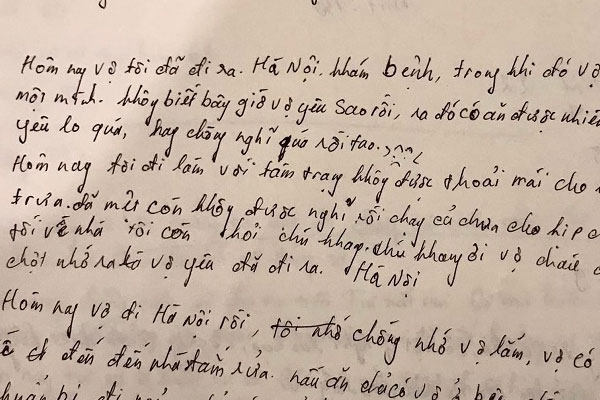 Hôm nay vợ tôi đã đi ra. Hà Nội. khám bệnh, trong khi đó vợ
một mình. không biết bây giờ vợ yêu sao rồi, ra đó có ăn được nhiên
yêu lo quá, hay chồng nghĩ quá rồi tao.
Hôm nay tôi đi làm với tâm trạng không được thoải mái cho
trưa. đã mệt còn không được nghĩ rồi chạy cả chưa cho kịp
tối về nhà tôi còn hỏi chú khay. chú khang ơi vợ cháu
chợt nhớ ra là vợ yêu đã đi ra. Hà Nội
Hôm nay vợ đi Hà Nội rồi, chồng nhớ vợ lắm, vợ có
đến đến nhà tắm rửa. nấu ăn